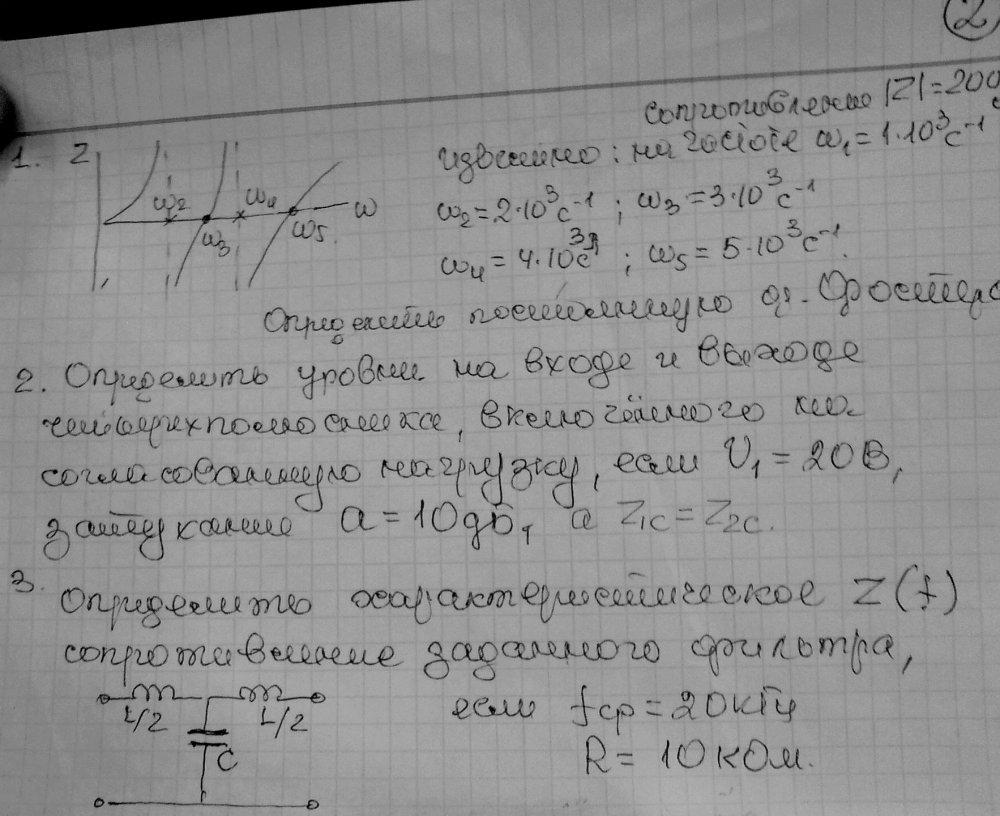 2
сопротивление |Z| = 200
1. Z известно: на частоте ω₁ = 1·10³с⁻¹
ω₂ ω₄ ω ω₂ = 2·10³с⁻¹ ; ω₃ = 3·10³с⁻¹
ω₃ ω₅ ω₄ = 4·10³с⁻¹ ; ω₅ = 5·10³с⁻¹.
Определить постоянную ф. Фостера
2. Определить уровни на входе и выходе
четырехполюсника, включённого на
согласованную нагрузку, если U₁ = 20В,
затухание a = 10дб, а Z₁c = Z₂c.
3. Определить характеристическое Z(f)
сопротивление заданного фильтра,
L/2 L/2 если fср = 20кГц
C R = 10кОм.